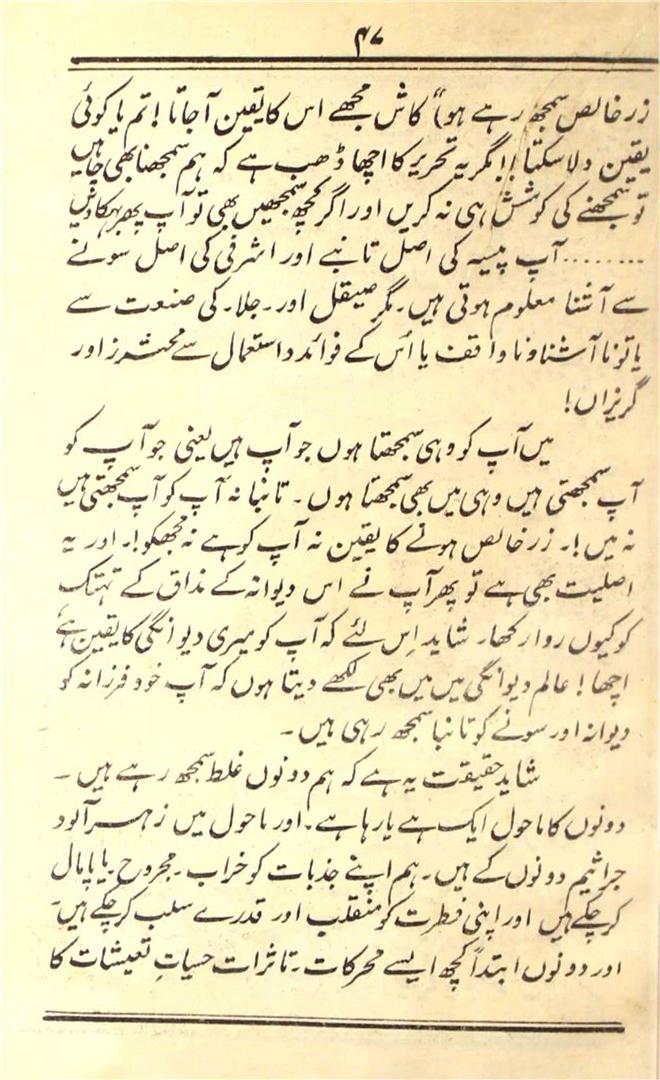 ۴۷
زر خالص سمجھ رہے ہو) “ کاش مجھے اس کا یقین آجاتا ! تم یا کوئی
یقین دلا سکتا !! مگر یہ تحریر کا اچھا ڈھب ہے کہ ہم سمجھنا بھی چاہیں
تو سمجھنے کی کوشش ہی نہ کریں اور اگر کچھ سمجھیں بھی تو آپ پھر بہکا دیں
........ آپ پیسہ کی اصل تانبے اور اشرفی کی اصل سونے
سے آشنا معلوم ہوتی ہیں۔ مگر صیقل اور۔ جلا۔ کی صنعت سے
یا تو نا آشنا و نا واقف یا اُس کے فوائد و استعمال سے محترز اور
گریزاں!
میں آپ کو وہی سمجھتا ہوں جو آپ ہیں یعنی جو آپ کو
آپ سمجھتی ہیں وہی میں بھی سمجھتا ہوں۔ تانبا نہ آپ کو آپ سمجھتی ہیں
نہ میں !۔ زر خالص ہونے کا یقین نہ آپ کو ہے نہ مجھکو !۔ اور یہ
اصلیت بھی ہے تو پھر آپ نے اس دیوانہ کے مذاق کے تہتک
کو کیوں روا رکھا۔ شاید اِس لئے کہ آپ کو میری دیوانگی کا یقین ہے
اچھا ! عالم دیوانگی میں میں بھی لکھے دیتا ہوں کہ آپ خود فرزانہ کو
دیوانہ اور سونے کو تانبا سمجھ رہی ہیں۔
شاید حقیقت یہ ہے کہ ہم دونوں غلط سمجھ رہے ہیں ۔
دونوں کا ماحول ایک ہے یا رہا ہے۔ اور ماحول میں زہر آلود
جراثیم دونوں کے ہیں۔ ہم اپنے جذبات کو خراب۔ مجروح۔ یا پامال
کر چکے ہیں اور اپنی فطرت کو منقلب اور قدرے سلب کر چکے ہیں۔
اور دونوں ابتداً کچھ ایسے محرکات۔ تاثرات حسیاتِ تعیشات کا